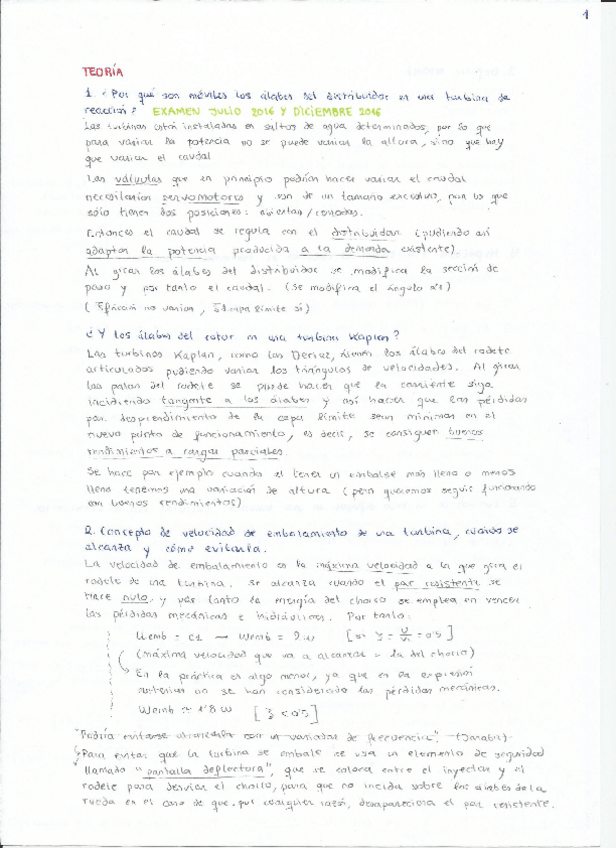 1
TEORÍA
1. ¿Por qué son móviles los álabes del distribuidor en una turbina de
reacción? EXAMEN JULIO 2016 Y DICIEMBRE 2016
Las turbinas están instaladas en saltos de agua determinados, por lo que
para variar la potencia no se puede variar la altura, sino que hay
que variar el caudal
Las válvulas que en principio podrían hacer variar el caudal
necesitarían servomotores y son de un tamaño excesivo, por lo que
sólo tienen dos posiciones: abiertas/cerradas.
Entonces el caudal se regula con el distribuidor (pudiendo así
adaptar la potencia producida a la demanda existente)
Al girar los álabes del distribuidor se modifica la sección de
paso y por tanto el caudal. (Se modifica el ángulo α1)
( no varían, capa límite sí)
¿Y los álabes del rotor en una turbina Kaplan?
Las turbinas Kaplan, como las Deriaz, tienen los álabes del rodete
articulados pudiendo variar los triángulos de velocidades. Al girar
las palas del rodete se puede hacer que la corriente siga
incidiendo tangente a los álabes y así hacer que las pérdidas
por desprendimiento de la capa límite sean mínimas en el
nuevo punto de funcionamiento, es decir, se consiguen buenos
rendimientos a cargas parciales.
Se hace por ejemplo cuando al tener un embalse más lleno o menos
lleno tenemos una variación de altura (pero queremos seguir funcionando
con buenos rendimientos)
2. Concepto de velocidad de embalamiento de una turbina, cuándo se
alcanza y cómo evitarla.
La velocidad de embalamiento es la máxima velocidad a la que gira el
rodete de una turbina. Se alcanza cuando el par resistente se
hace nulo, y por tanto la energía del chorro se emplea en vencer
las pérdidas mecánicas e hidráulicas. Por tanto:
Uemb = c1 → Wemb = 2w [si ξ = U/V1 = 0'5]
(máxima velocidad que va a alcanzar = la del chorro)
En la práctica es algo menor, ya que en la expresión
anterior no se han considerado las pérdidas mecánicas.
Wemb ≈ 1'8 w [ξ < 0'5]
"Podría evitarse con un variador de frecuencia".
Para evitar que la turbina se embale se usa un elemento de seguridad
llamado "pantalla deflectora", que se coloca entre el inyector y el
rodete para desviar el chorro, para que no incida sobre los álabes de la
rueda en el caso de que, por cualquier razón, desapareciera el par resistente.